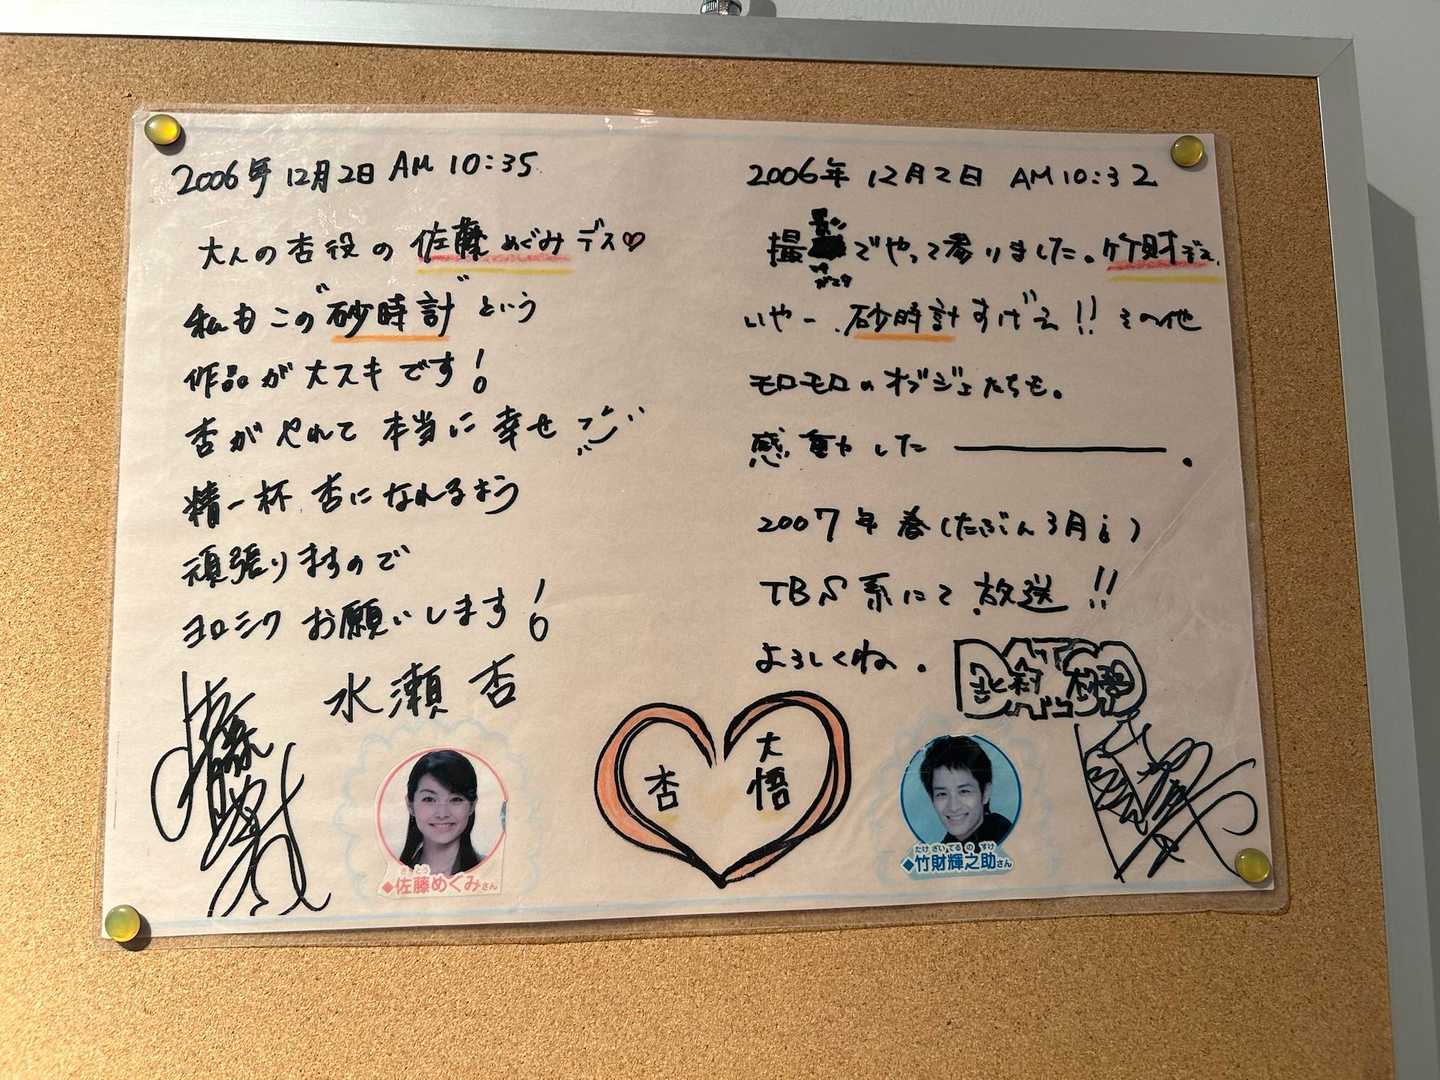 2006年 12月2日 AM 10:35
大人の杏役の 佐藤めぐみデス♡
私もこの"砂時計"という
作品が大スキです!
杏がやれて 本当に 幸せ
精一杯 杏になれるよう
頑張りますので
ヨロシク お願いします!
水瀬 杏
佐藤めぐみ
さとう
◆佐藤めぐみさん
杏
大悟
2006年 12月2日 AM10:32
撮影でやって参りました。竹財デス
いやー、砂時計すげえ!! その他
モロモロのオブジェたちも。
感動した ―。
2007年 春(たぶん3月;)
TBS系にて 放送!!
よろしくね。
DAIGO
北村大悟
たけざいてるのすけ
◆竹財輝之助さん